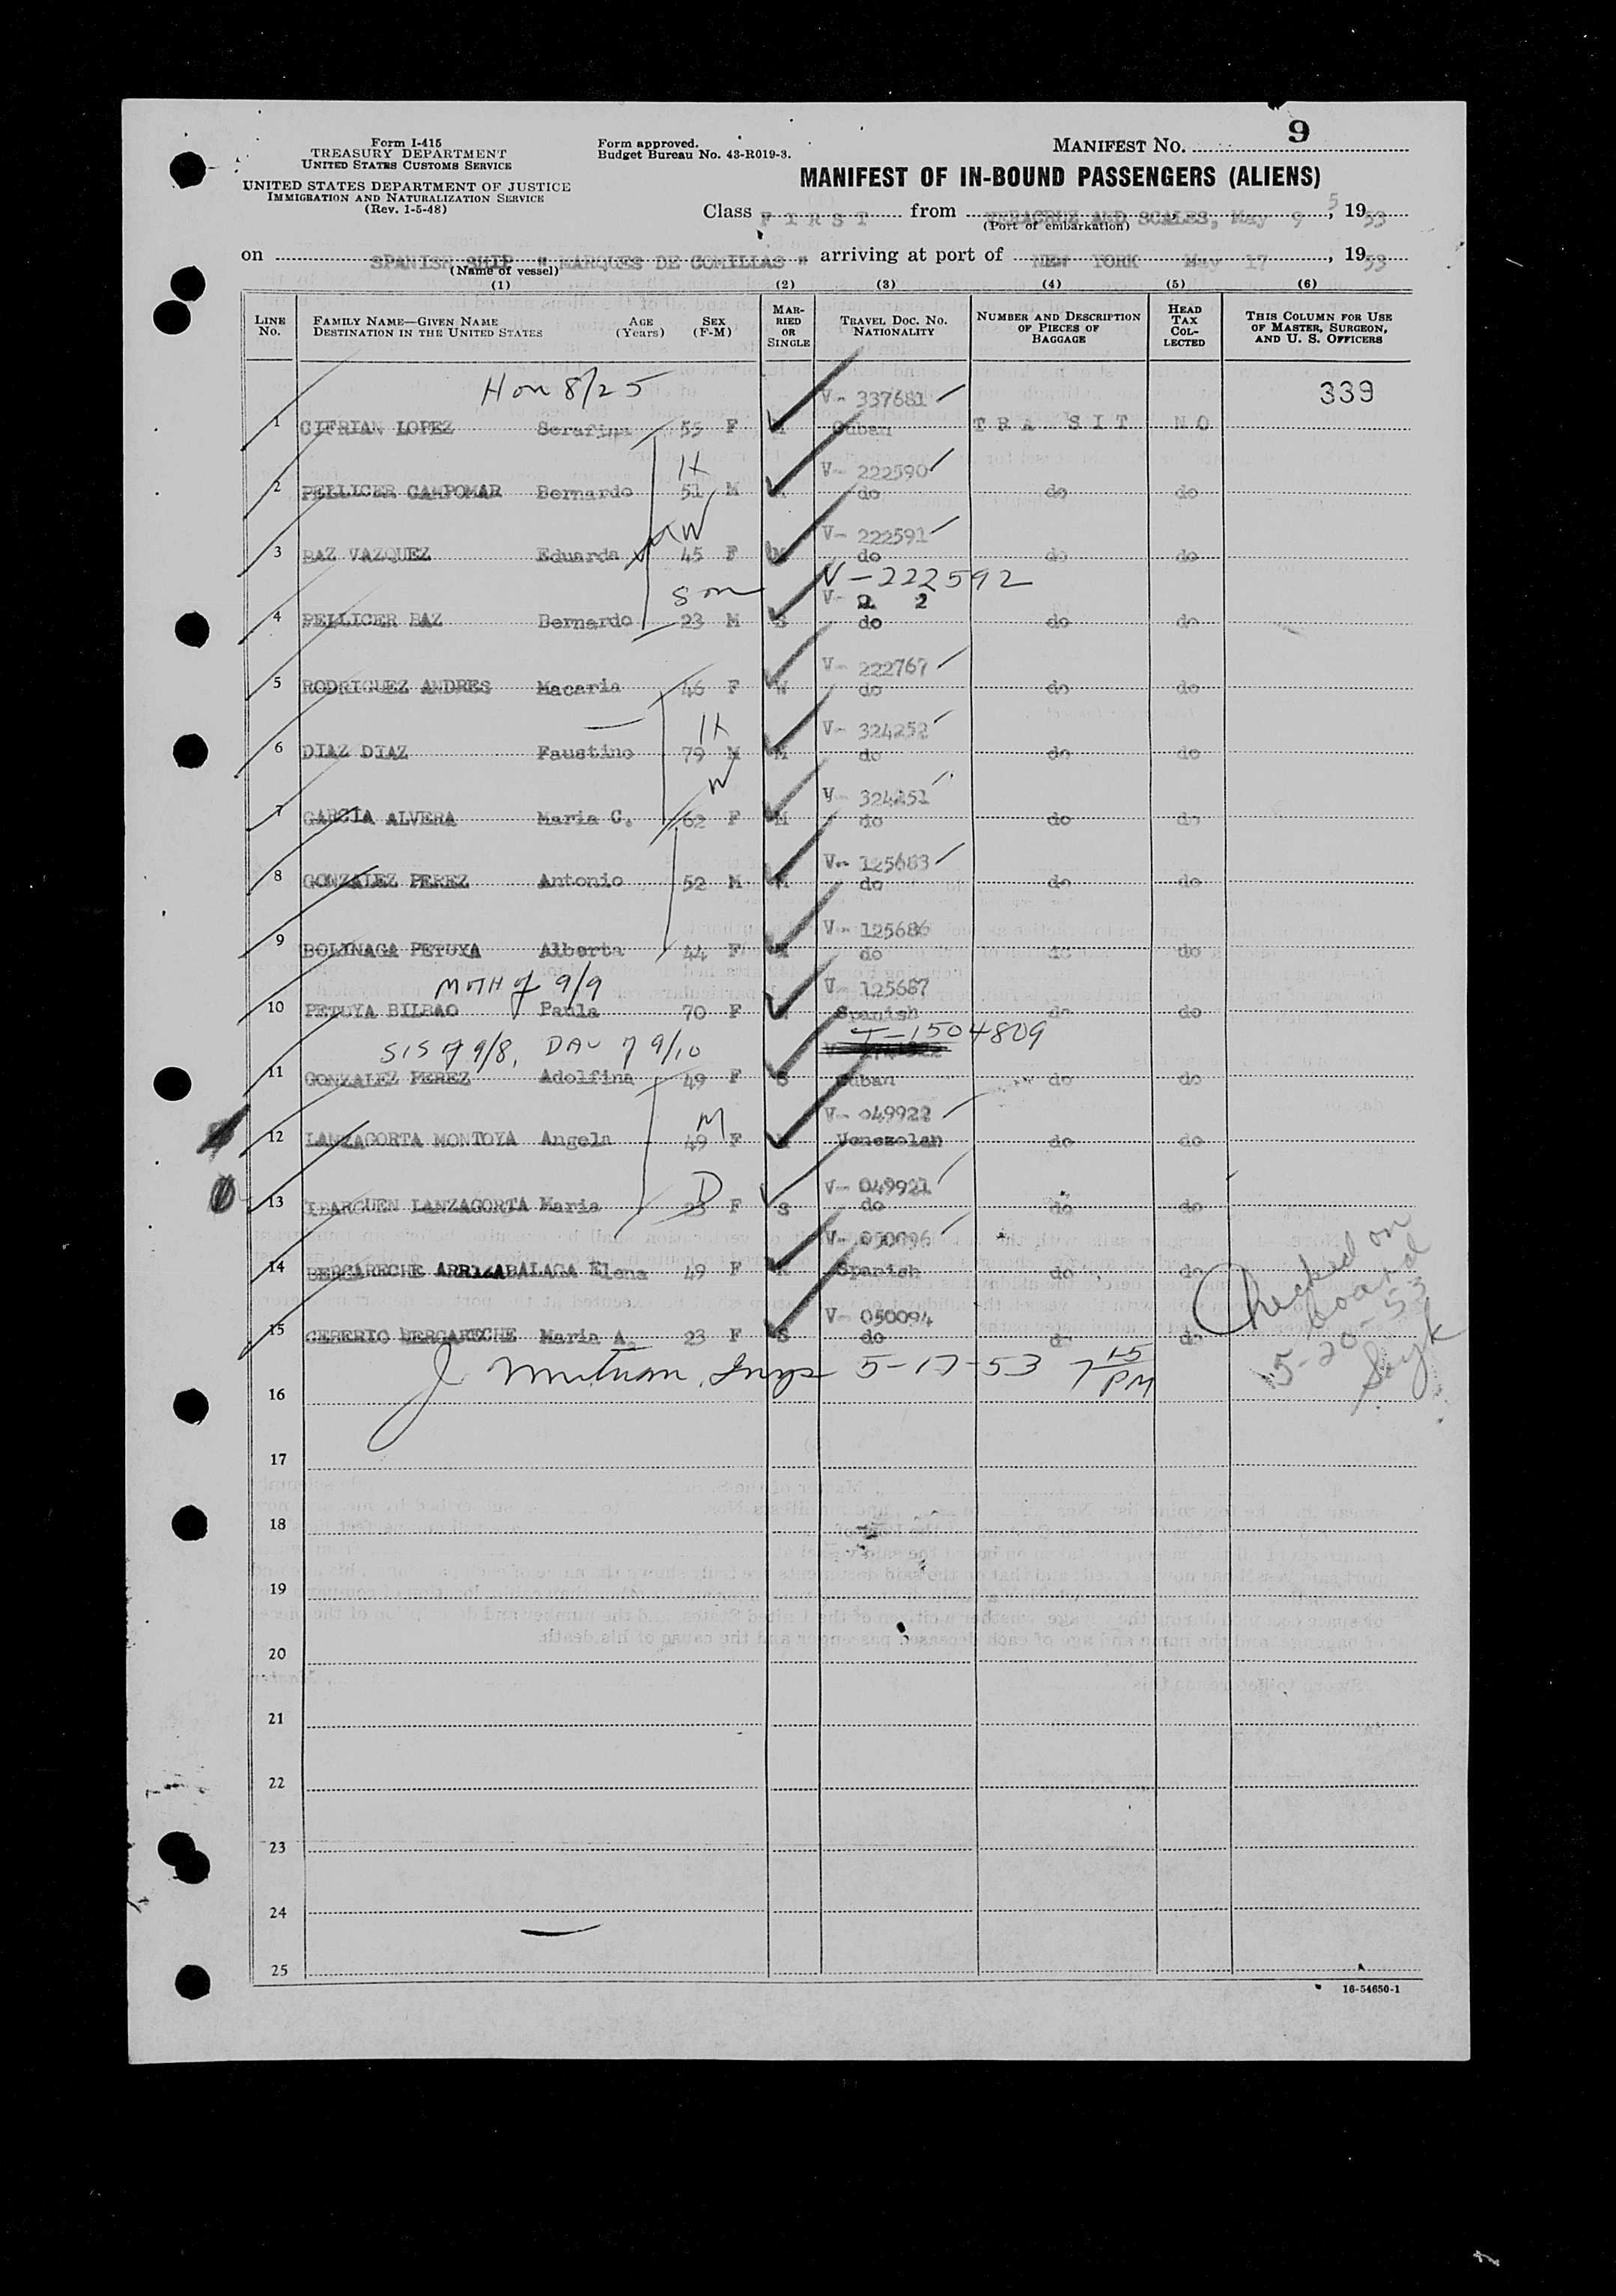 Form I-415
TREASURY DEPARTMENT
UNITED STATES CUSTOMS SERVICE
UNITED STATES DEPARTMENT OF JUSTICE
IMMIGRATION AND NATURALIZATION SERVICE
(Rev. 1-5-48)
Form approved.
Budget Bureau No. 43-R019-3.
MANIFEST NO. 9
MANIFEST OF IN-BOUND PASSENGERS (ALIENS)
Class FIRST from VERACRUZ AND SCALES, May 9 5, 1953
(Port of embarkation)
on SPANISH SHIP "MARQUES DE COMILLAS" arriving at port of NEW YORK May 17, 1953
(Name of vessel)
(1) (2) (3) (4) (5) (6)
LINE NO. FAMILY NAME—GIVEN NAME DESTINATION IN THE UNITED STATES AGE (Years) SEX (F-M) MARRIED OR SINGLE TRAVEL DOC. NO. NATIONALITY NUMBER AND DESCRIPTION OF PIECES OF BAGGAGE HEAD TAX COLLECTED THIS COLUMN FOR USE OF MASTER, SURGEON, AND U. S. OFFICERS
H on 8/25 V- 337681 339
1 CIFRIAN LOPEZ Serafina 55 F M Cuban TRA SIT NO
H V- 222590
2 PELLICER CAMPOMAR Bernardo 51 M M do do do
W V- 222591
3 BAZ VAZQUEZ Eduarda 45 F M do do do
son V-222592
V- 2 2
4 PELLICER BAZ Bernardo 23 M S do do do
V- 222767
5 RODRIGUEZ ANDRES Macaria 46 F W do do do
H V- 324252
6 DIAZ DIAZ Faustino 79 M M do do do
W V- 324251
7 GARCIA ALVERA Maria C. 62 F M do do do
V- 125683
8 GONZALEZ PEREZ Antonio 52 M M do do do
V- 125686
9 BOLINAGA PETUYA Alberta 44 F M do do do
MOTH of 9/9 V- 125687
10 PETUYA BILBAO Paula 70 F Spanish do do
SIS of 9/8, DAU of 9/10 T-1504809
11 GONZALEZ PEREZ Adolfina 49 F S Cuban do do
M V- 049922
12 LANZAGORTA MONTOYA Angela 49 F M Venezolan do do
D V- 049921
13 IBARGUEN LANZAGORTA Maria 23 F S do do do
V- 050096
14 BERGARECHE ARRIZABALAGA Elena 49 F M Spanish do do
V- 050094
15 CEBERIO BERGARECHE Maria A. 23 F S do do do
Checked on
board
5-20-53
5-17-53 7 15 PM
16
17
18
19
20
21
22
23
24
25
16-54650-1